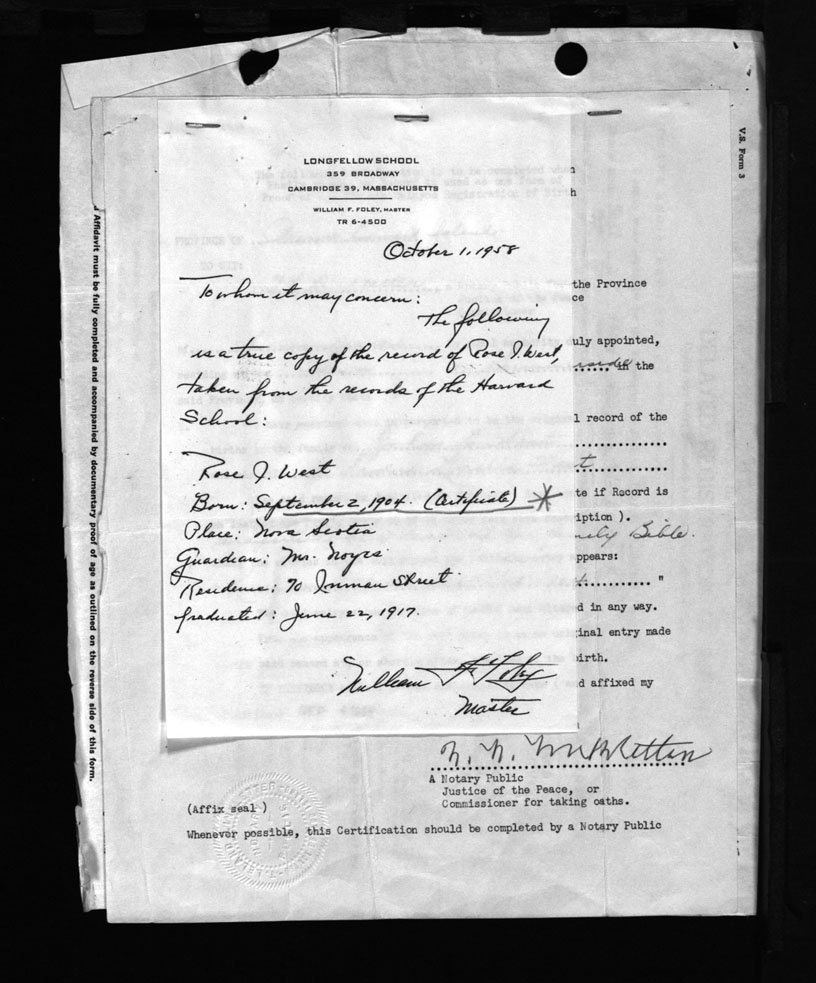 LONGFELLOW SCHOOL
359 BROADWAY
CAMBRIDGE 39, MASSACHUSETTS
WILLIAM F. FOLEY, MASTER
TR 6-4500
October 1, 1958
To whom it may concern:
The following
is a true copy of the record of Rose J. West,
taken from the records of the Harvard
School:
Rose J. West
Born: September 2, 1904. (Certificate) *
Place: Nova Scotia
Guardian: Mr. Noyes
Residence: 70 Inman Street
Graduated: June 22, 1917.
William F. Foley
Master
V.S. Form 3
Affidavit must be fully completed and accompanied by documentary proof of age as outlined on the reverse side of this form.
the Province
uly appointed,
in the
l record of the
te if Record is
iption ).
Bible.
ppears:
"
d in any way.
inal entry made
irth.
d affixed my
A Notary Public
Justice of the Peace, or
Commissioner for taking oaths.
(Affix seal )
Whenever possible, this Certification should be completed by a Notary Public